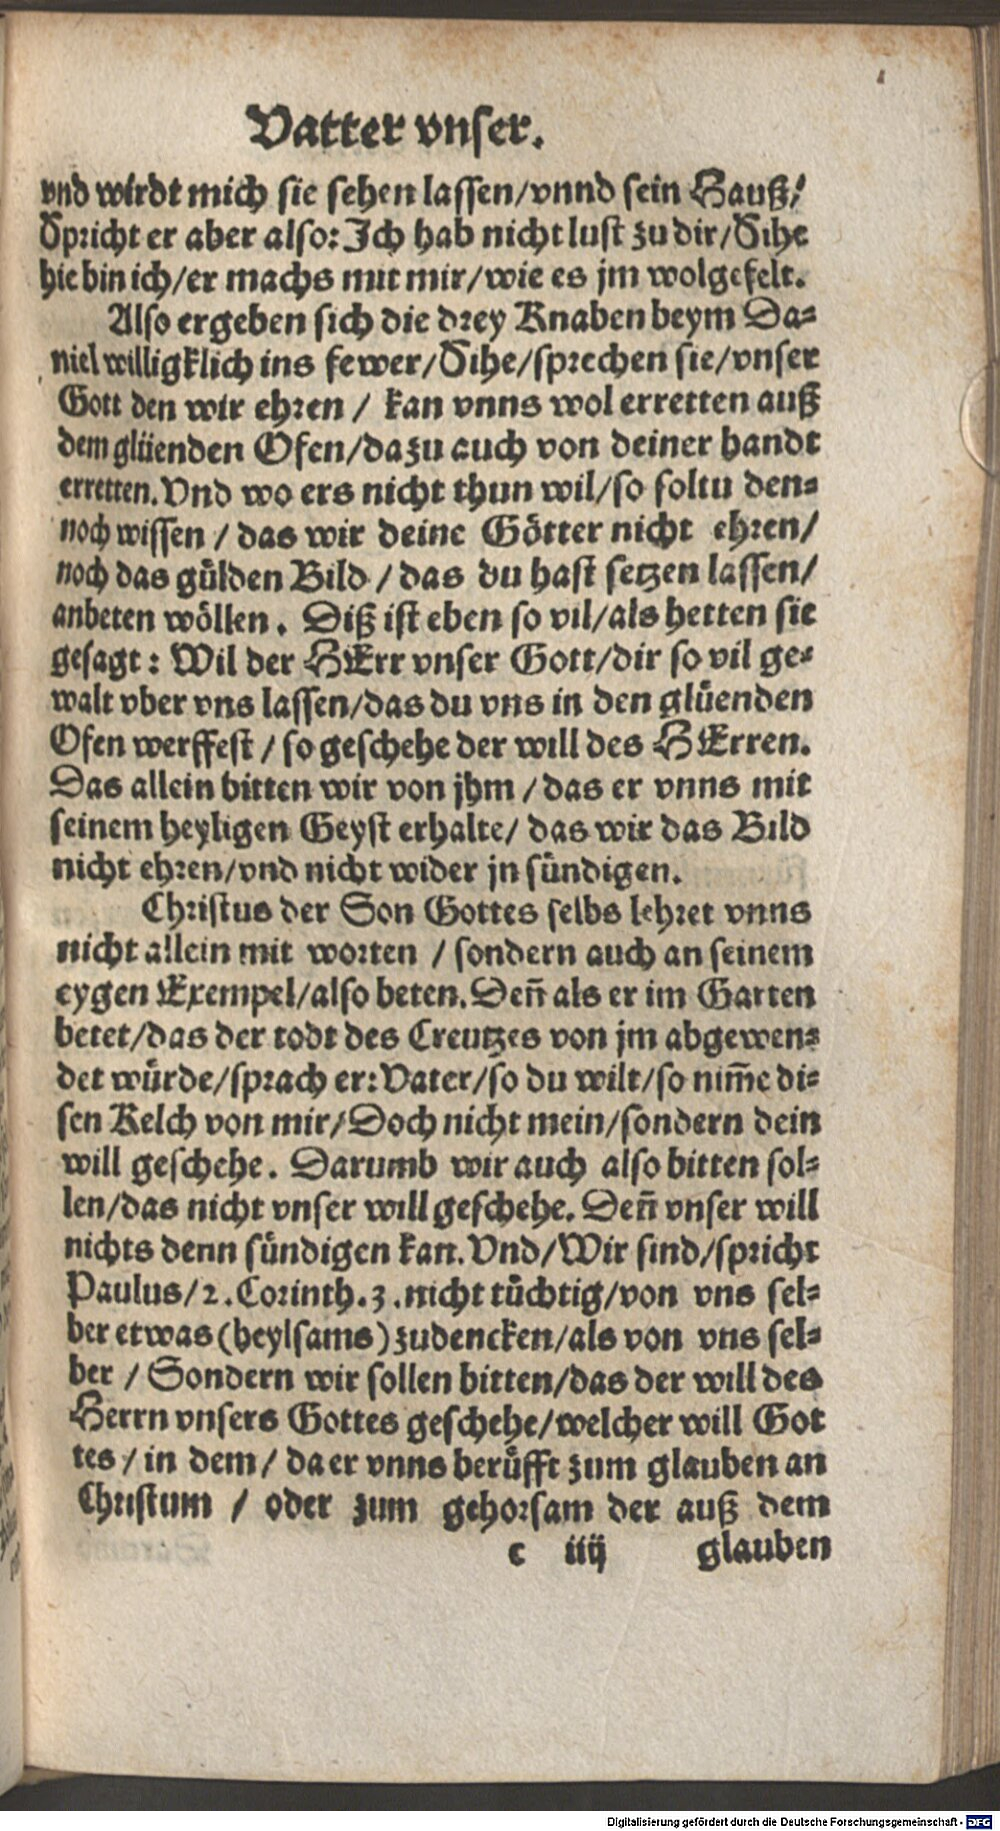 Vatter vnser.
vnd wirdt mich sie sehen lassen/vnnd sein Hauß/
Spricht er aber also: Ich hab nicht lust zu dir/Sihe
hie bin ich/er machs mit mir/wie es jm wolgefelt.
Also ergeben sich die drey Knaben beym Da=
niel willigklich ins fewer/Sihe/sprechen sie/vnser
Gott den wir ehren / kan vnns wol erretten auß
dem glüenden Ofen/dazu auch von deiner handt
erretten. Vnd wo ers nicht thun wil/so soltu den=
noch wissen / das wir deine Götter nicht ehren/
noch das gülden Bild / das du hast setzen lassen/
anbeten wöllen. Diß ist eben so vil/als hetten sie
gesagt: Wil der HErr vnser Gott/dir so vil ge=
walt vber vns lassen/das du vns in den glüenden
Ofen werffest / so geschehe der will des HErren.
Das allein bitten wir von jhm / das er vnns mit
seinem heyligen Geyst erhalte/ das wir das Bild
nicht ehren/vnd nicht wider jn sündigen.
Christus der Son Gottes selbs lehret vnns
nicht allein mit worten / sondern auch an seinem
eygen Exempel/also beten. Deñ als er im Garten
betet/das der todt des Creutzes von jm abgewen=
det würde/sprach er: Vater/so du wilt/so nim̃e di=
sen Kelch von mir/Doch nicht mein/sondern dein
will geschehe. Darumb wir auch also bitten sol=
len/das nicht vnser will geschehe. Deñ vnser will
nichts denn sündigen kan. Vnd/Wir sind/spricht
Paulus/2. Corinth. 3. nicht tüchtig/von vns sel=
ber etwas (heylsams) zudencken/als von vns sel=
ber / Sondern wir sollen bitten/das der will des
Herrn vnsers Gottes geschehe/welcher will Got
tes / in dem / da er vnns berüfft zum glauben an
Christum / oder zum gehorsam der auß dem
c iiij glauben
Digitalisierung gefördert durch die Deutsche Forschungsgemeinschaft - DFG